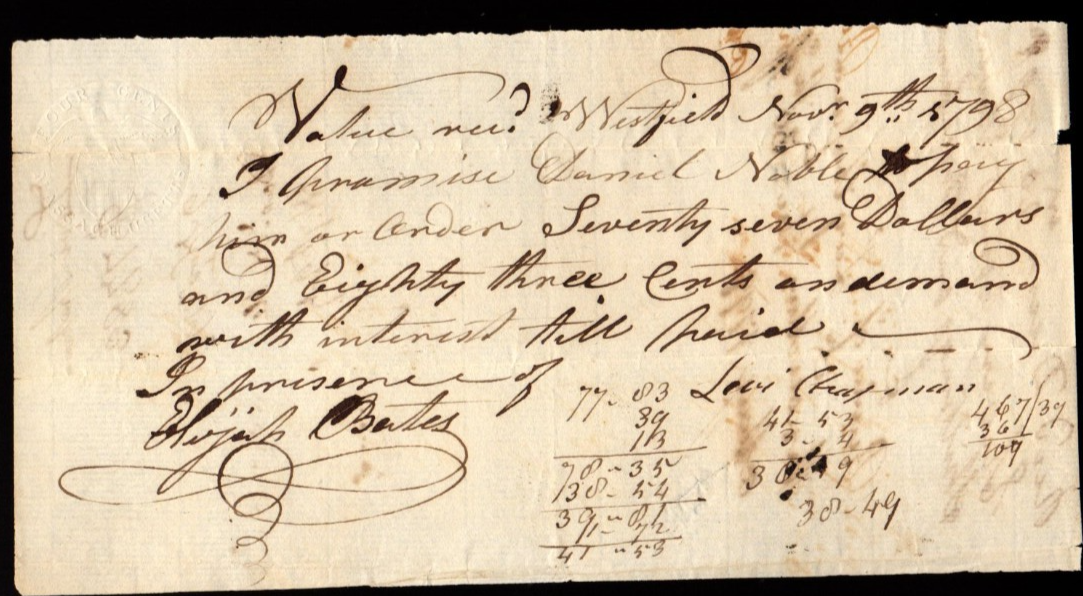 Value recd Westfield Novr 9th 1798
I promise Daniel Noble to pay
him or order Seventy seven Dollars
and Eighty three Cents on demand
with interest till paid
In presence of
Levi Chapman
Elijah Bates
77-83
39
13
78-35
38-54
39-81
1-72
41-53
41-53
3-4
38-49
38-49
467/39
36
107
FOUR CENTS